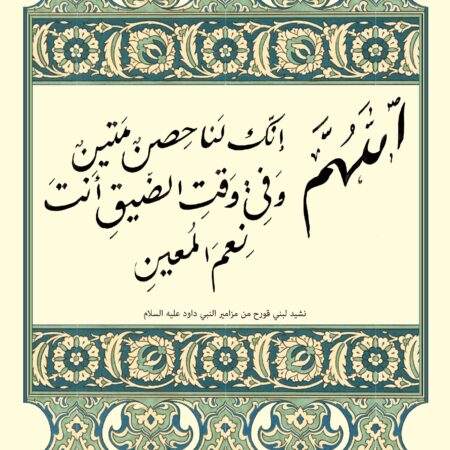 اللّٰهُمَّ إنّك لَنا حِصنٌ مَتينٌ
وَفِي وَقتِ الضِّيقِ أَنتَ
نِعمَ المُعينِ
نشيد لبني قورح من مزامير النبي داود عليه السلام